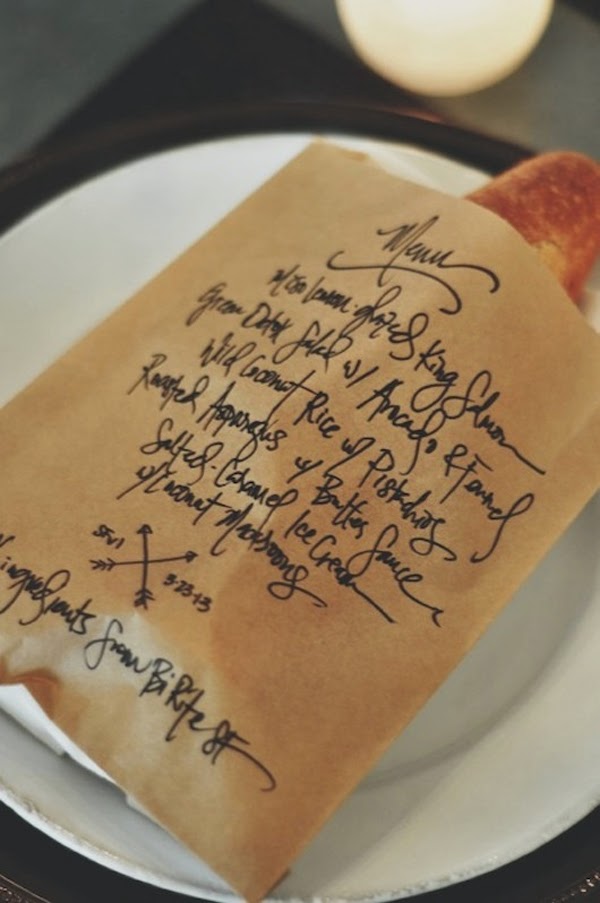 Menu
Miso Lemon-glazed King Salmon
Green Detox Salad w/ Avocado & Fennel
Wild Coconut Rice w/ Pistachios
Roasted Asparagus w/ Butter Sauce
Salted-Caramel Ice Cream
w/ Coconut Macaroons
3-23-13
ingredients from BiRite SF